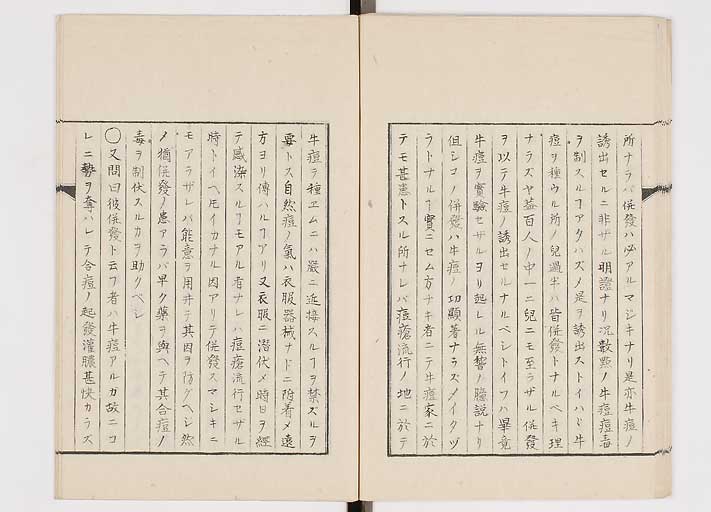 所ナラバ併發ハ必アルマジキナリ是亦牛痘ノ
誘出セルニ非ザル明證ナリ况數顆ノ牛痘痘毒
ヲ制スルヿアタハズメ是ヲ誘出ストイハヾ牛
痘ヲ種ウル所ノ兒過半ハ皆併發トナルベキ理
ナラズヤ葢百人ノ中一二兒ニモ至ラザル併發
ヲ以テ牛痘ノ誘出セルナルベシトイフハ畢竟
牛痘ヲ實驗セザルヨリ起レル無稽ノ臆説ナリ
但シコノ併發ハ牛痘ノ功顯著ナラズメイタヅ
ラトナルヿ實ニセム方ナキ者ニテ牛痘家ニ於
テモ甚患トスル所ナレバ痘瘡流行ノ地ニ於テ
牛痘ヲ種ヱムニハ嚴ニ近接スルヿヲ禁ズルヲ
要トス自然痘ノ氣ハ衣服器械ナドニ附着メ遠
方ヨリ傳ハルヿアリ又衣服ニ潛伏メ時日ヲ經
テ感染スルヿモアル者ナレハ痘瘡流行セザル
時トイヘ𪜈イカナル因アリテ併發スマジキニ
モアラザレバ能意ヲ用井テ其因ヲ防グベシ然
ノ猶併發ノ患アラバ早ク藥ヲ與ヘテ其合痘ノ
毒ヲ制伏スルカヲ助クベシ
○又問曰彼併發ト云フ者ハ牛痘アルガ故ニコ
レニ勢ヲ奪ハレテ合痘ノ起發灌膿甚快カラズ